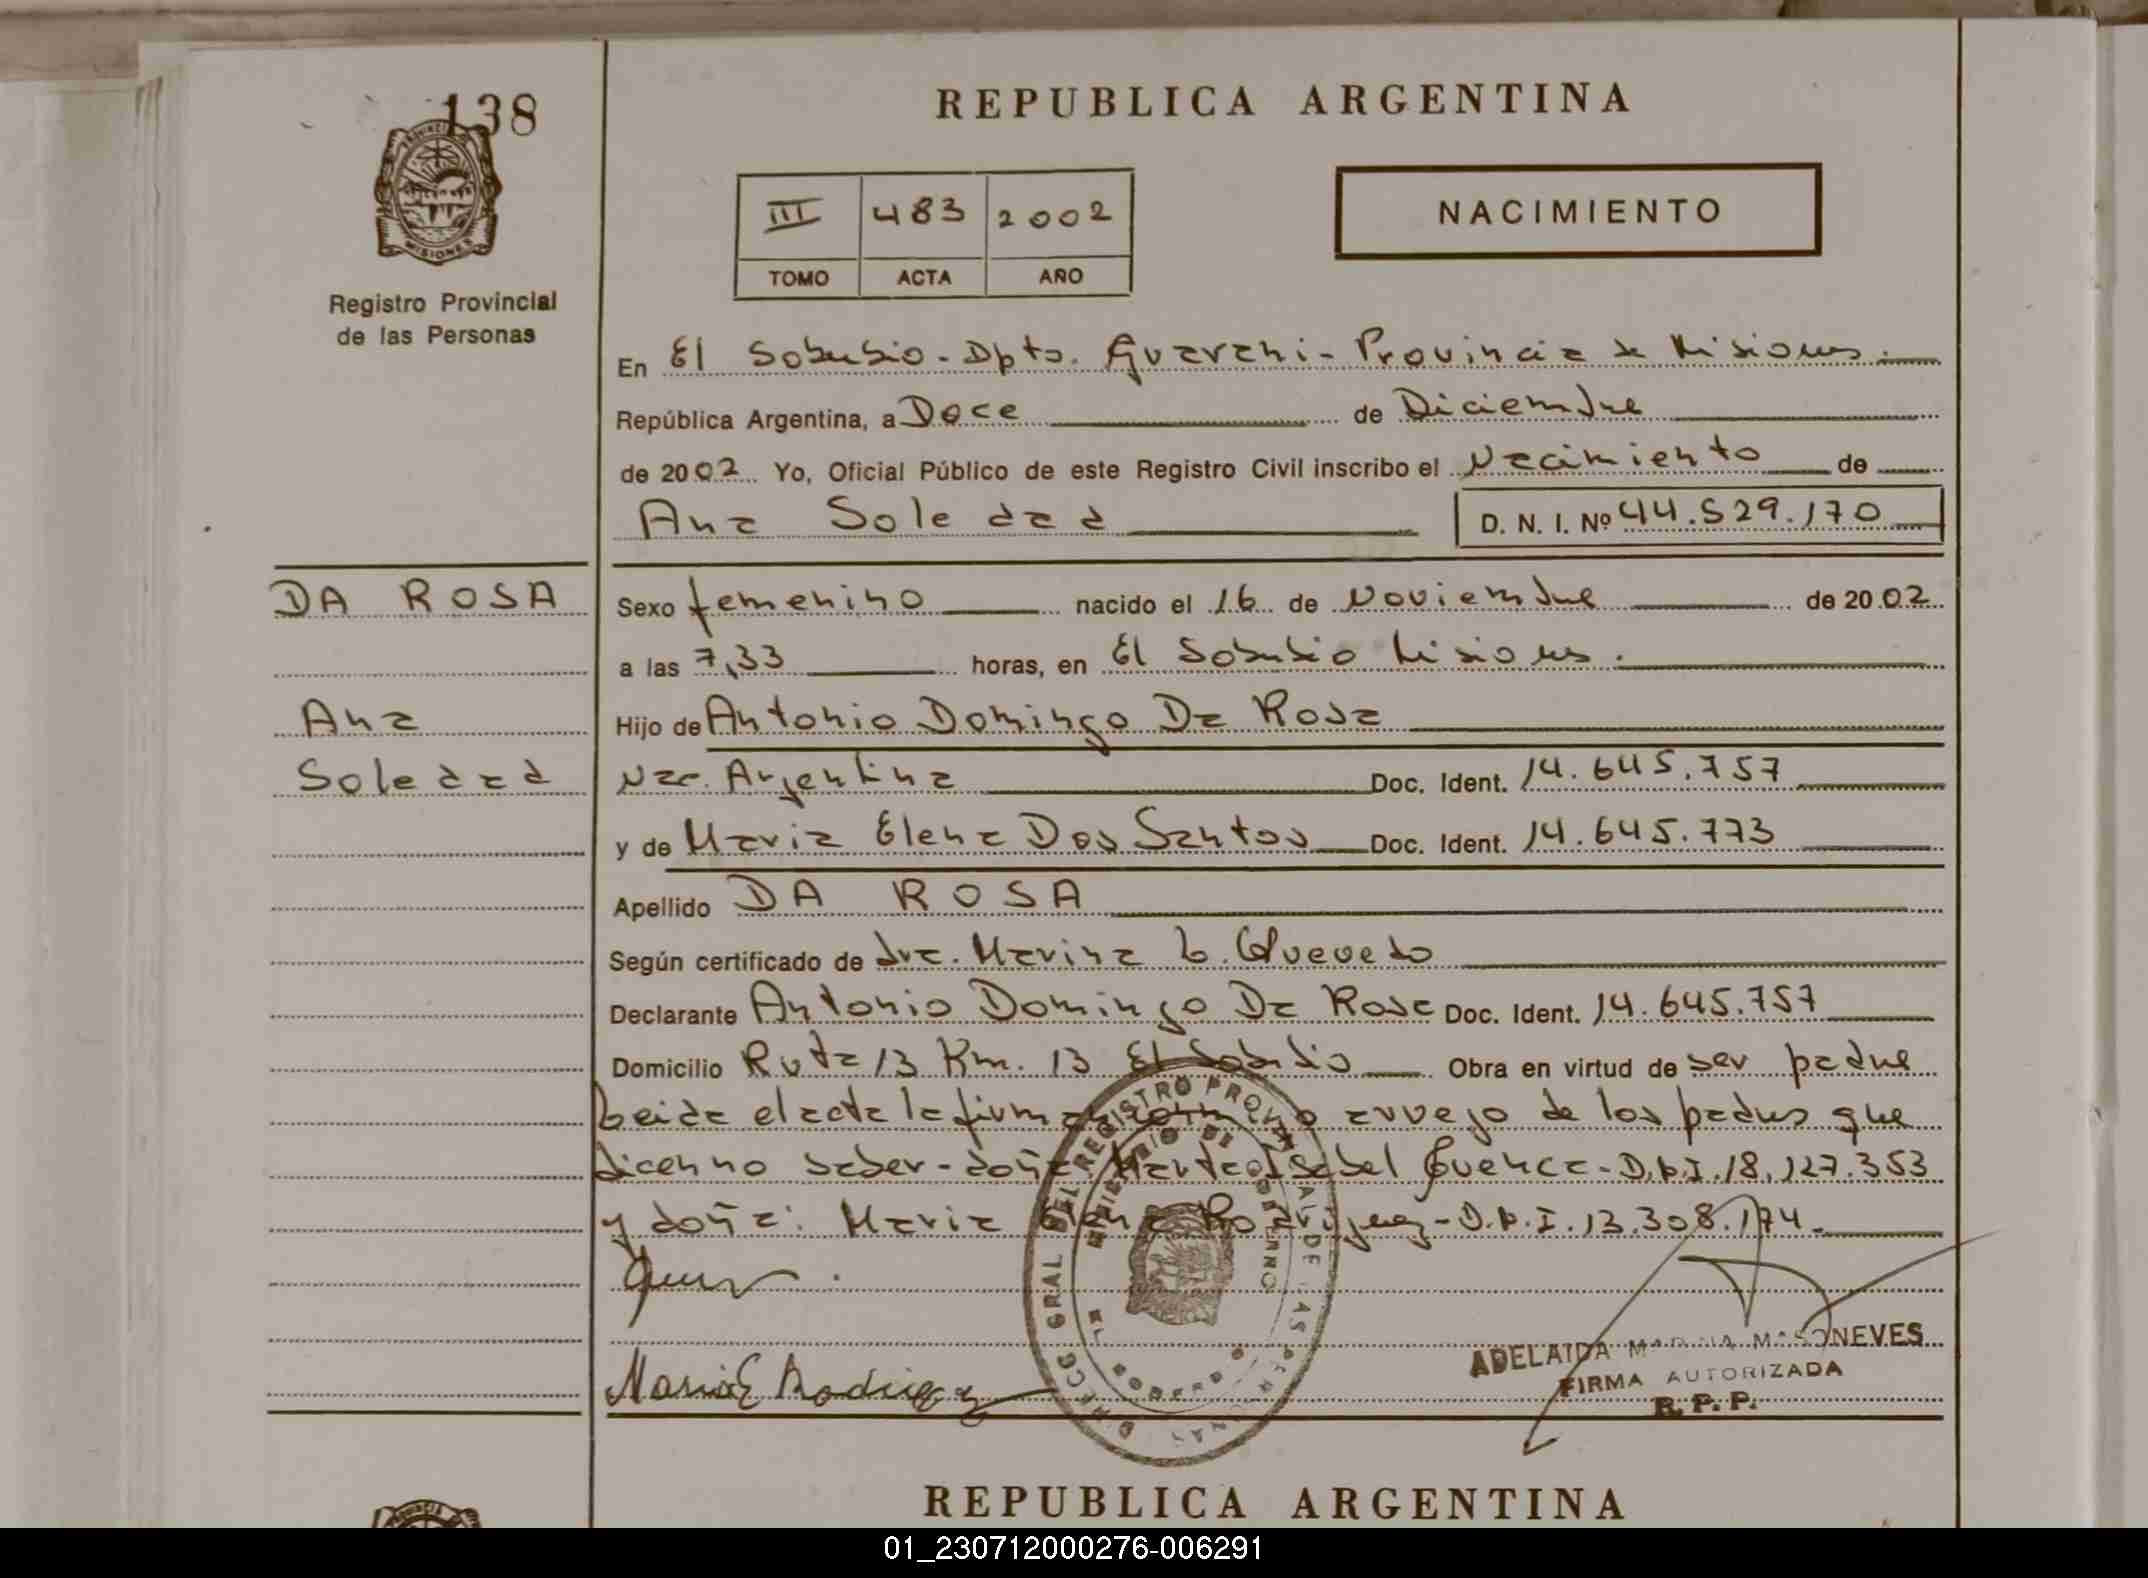 138
REPUBLICA ARGENTINA
III 483 2002
TOMO ACTA AÑO
NACIMIENTO
MISIONES
Registro Provincial
de las Personas
En El Soberbio - Dpto. Guarani - Provincia de Misiones.
República Argentina, a Doce de Diciembre
de 2002 Yo, Oficial Público de este Registro Civil inscribo el Nacimiento de
Ana Soledad D. N. I. Nº 44.529.170
DA ROSA
Sexo femenino nacido el 16 de Noviembre de 2002
a las 7,33 horas, en El Soberbio Misiones.
Ana
Hijo de Antonio Domingo Da Rosa
Soledad
Nac. Argentina Doc. Ident. 14.645.757
y de Maria Elena Dos Santos Doc. Ident. 14.645.773
Apellido DA ROSA
Según certificado de dra. Marina L. Quevedo
Declarante Antonio Domingo Da Rosa Doc. Ident. 14.645.757
Domicilio Ruta 13 Km. 13 El Soberbio Obra en virtud de ser padre
Leida el acta la firman a ruego de los padres que
dicen no saber - doña Marta Isabel Cuenca - D.N.I. 18.127.353
y doña: Maria Elena Rodriguez - D.N.I. 13.308.174.
Maria E Rodriguez
DIRECC GRAL DEL REGISTRO PROVINCIAL DE LAS PERSONAS
MINISTERIO DE GOBIERNO
ADELAIDA MARINA MASONEVES
FIRMA AUTORIZADA
R. P. P.
REPUBLICA ARGENTINA
01_230712000276-006291